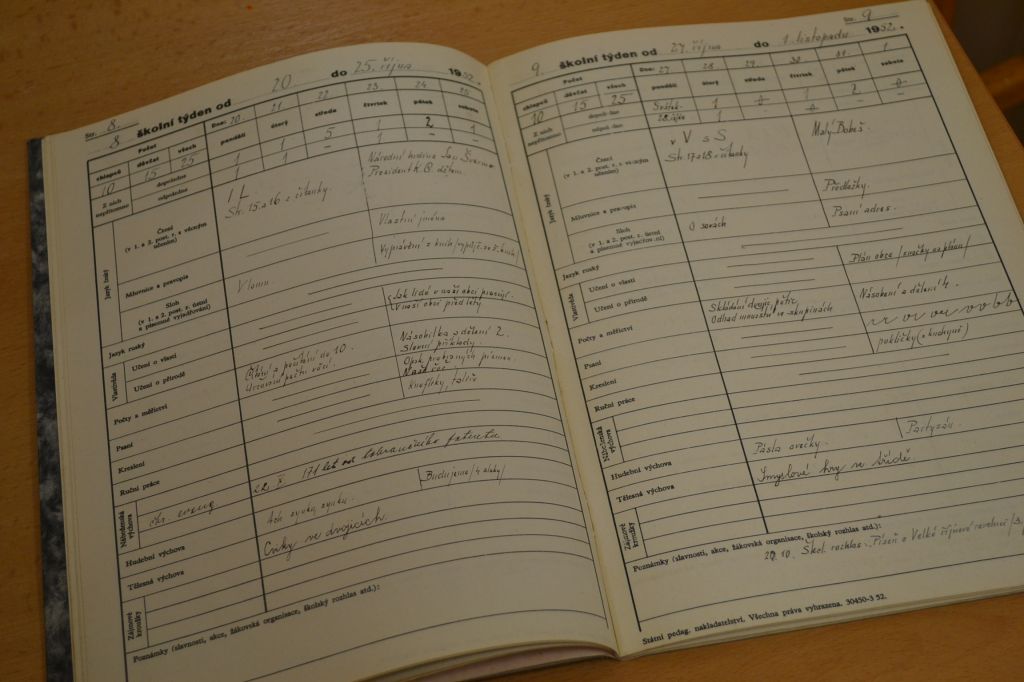 Str. 8.
8 školní týden od 20 do 25. října 1952.
Počet
Dne: 20 21 22 23. 24 25
chlapců děvčat všech pondělí úterý středa čtvrtek pátek sobota
10 15 25
Z nich nepřítomno dopoledne 1 1 5 1 2 1
odpoledne 1 1 – 1 –
Jazyk český
Čtení
(v 1. a 2. post. r. s věcným učením)
I L
Str. 15 a 16 z čítanky
Národní hrdina Jan Šverma
President K. G. dětem.
Mluvnice a pravopis
Vlastní jména
Sloh
(v 1. a 2. post. r. ústní a písemné vyjadřování)
Jazyk ruský
Vlastivěda
Učení o vlasti
Jak lidé v naší obci pracují.
Učení o přírodě
V naší obci před lety
Počty a měřictví
Čítání a počítání do 10.
Určování počtu věcí.
Násobilka a dělení 2.
Slovní příklady.
Psaní
Opak. probraných písmen.
Kreslení
Naše ves
Ruční práce
knoflíky, talíř
22. X. 171 let od tolerančního patentu
Náboženská výchova
Hudební výchova
Ach synku, synku.
Tělesná výchova
Cviky ve dvojicích
Zájmové kroužky
Poznámky (slavnosti, akce, žákovská organisace, školský rozhlas atd.):
Str. 9
9. školní týden od 27. října do 1. listopadu 1952.
Počet
Dne: 27 28 29. 30 31. 1.
chlapců děvčat všech pondělí úterý středa čtvrtek pátek sobota
10 15 25
Z nich nepřítomno dopoledne Svátek 1 1 2
odpoledne 28. října 1
Jazyk český
Čtení
(v 1. a 2. post. r. s věcným učením)
v V s S
Str. 17 a 18 z čítanky
Malý Bobeš.
Mluvnice a pravopis
Předložky.
Sloh
(v 1. a 2. post. r. ústní a písemné vyjadřování)
Psaní adres.
Jazyk ruský
Vlastivěda
Učení o vlasti
Plán obce / značky na plánu /
Učení o přírodě
Počty a měřictví
Skládání dvojic, pětic
Odhad množství ve skupinách
Násobení a dělení 4.
Psaní
Kreslení
Ruční práce
Náboženská výchova
Hudební výchova
Pásla ovečky.
Partyzán.
Tělesná výchova
Smyslové hry ve třídě
Zájmové kroužky
Poznámky (slavnosti, akce, žákovská organisace, školský rozhlas atd.):
29. 10. Škol. rozhlas: Píseň o Velké říjnové revoluci
Státní pedag. nakladatelství. Všechna práva vyhrazena. 30450-3 52.